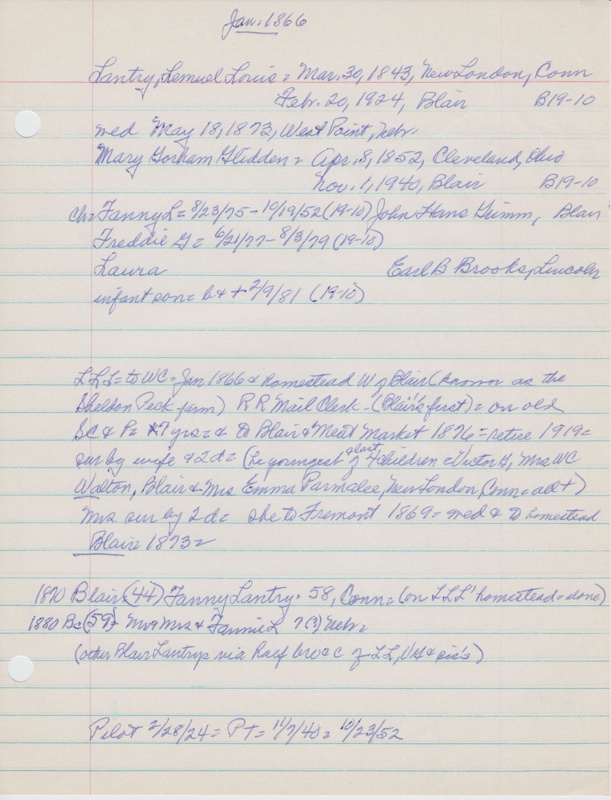 Jan. 1866
Lantry, Lemuel Louis = Mar. 30, 1843, New London, Conn
Febr. 20, 1924, Blair B19-10
wed May 18, 1873, West Point, Nebr.
Mary Gorham Glidden = Apr. 8, 1852, Cleveland, Ohio
Nov. 1, 1940, Blair B19-10
ch= Fanny L = 8/23/75 - 10/19/52 (19-10) John Hans Grimm, Blair
Freddie G = 6/21/77 - 8/3/79 (19-10)
Laura Earl B Brooks, Lincoln
infant son = b & + 2/9/81 (19-10)
L L L = to WC = Jan 1866 & homestead W of Blair (known as the
Sheldon Peck farm) RR Mail Clerk - (Blair's first) = on old
SC & P = 7 yrs = & to Blair & Meat Market 1876 = retire 1919 =
sur by wife & 2d = (he youngest of 4 children = Victor G, Mrs WC
Walton, Blair & Mrs Emma Parmalee, New London, Conn = all +)
Mrs sur by 2d = she to Fremont 1869 = wed & to homestead
Blair 1873 =
1870 Blair (44) Fanny Lantry = 58, Conn = (on LLL' homestead = alone)
1880 B = (59) Mr & Mrs & Fannie L 7 (?) Nebr =
(other Blair Lantrys via half bro & c of LL, VG & sis's)
Pilot 2/28/24 = PT = 11/7/40 = 10/23/52